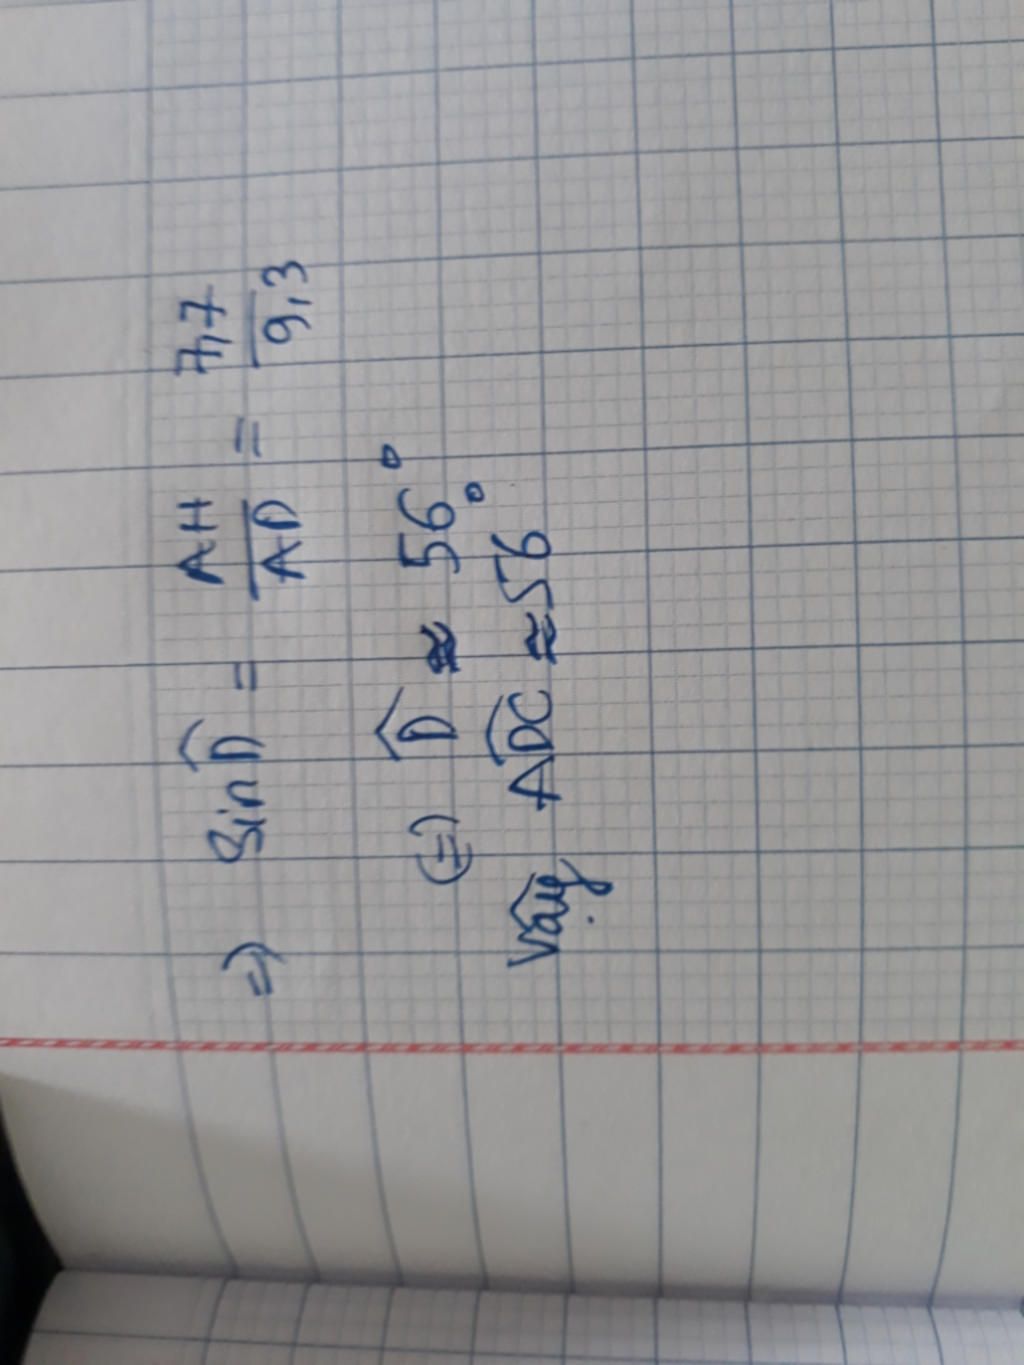 =) Sin D̂ = AH/AD = 7,7/9,3
(=) D̂ ≈ 56°
Vậy ADC ≈ 56°